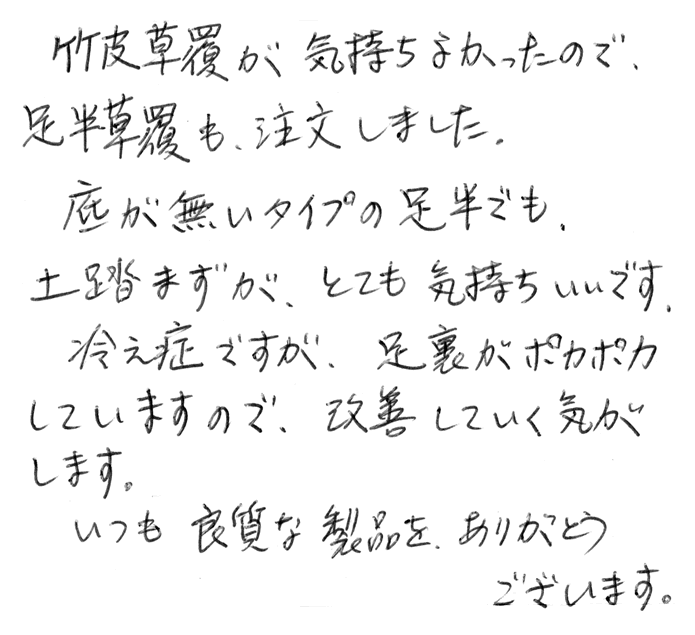 竹皮草履が気持ちよかったので、
足半草履も、注文しました。
底が無いタイプの足半でも、
土踏まずが、とても気持ちいいです。
冷え症ですが、足裏がポカポカ
していますので、改善していく気が
します。
いつも良質な製品を、ありがとう
ございます。